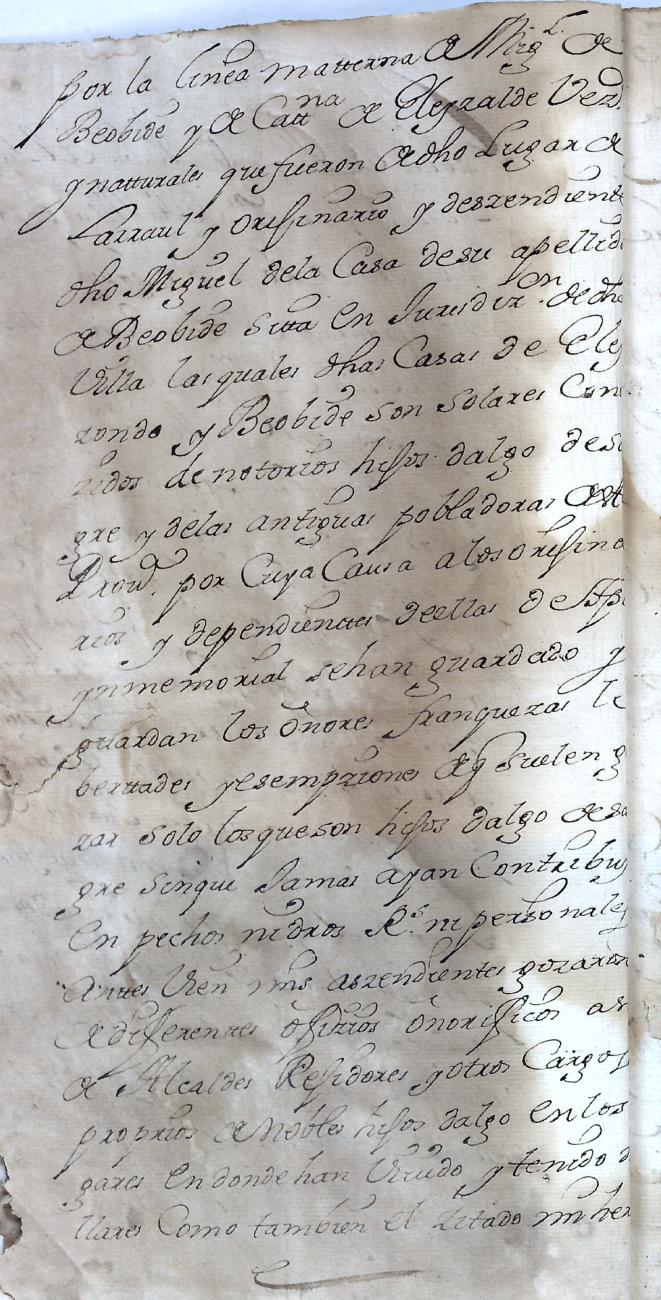 por la linea matterna de Mig.l de
Beobide y de Catt.na de Eleyzalde Vez
ynatturales que fueron de dho Lugar de
Larraul y orijinario y deszendiente
dho Miguel dela Casa desu apellid
de Beobide sitta en Jurisdiz.on de dha
Villa las quales dhas Casas de Eley
zondo y Beobide son solares Cono
zidos de notorios hijos dalgo desa
gre y delas antiguas pobladoras de
Prov.a por Cuya Causa a los orijina
rios y dependienttes deellas de
ynmemorial sehan guardado y
guardan los onores franquezas li
berttades yesempziones de q suelen g
zar solo los queson hijos dalgo de sa
gre sinque Jamas ayan Contribuy
En pechos ni dros R.s ni personales
anttes Vien mis aszendientes gozaron
de differentes ofizios onorificos as
de Alcaldes Rejidores y otros Cargos
proprios de Nobles hijos dalgo En los
gares en donde han Vivido y tenido
llares Como tambien el zitado mi her